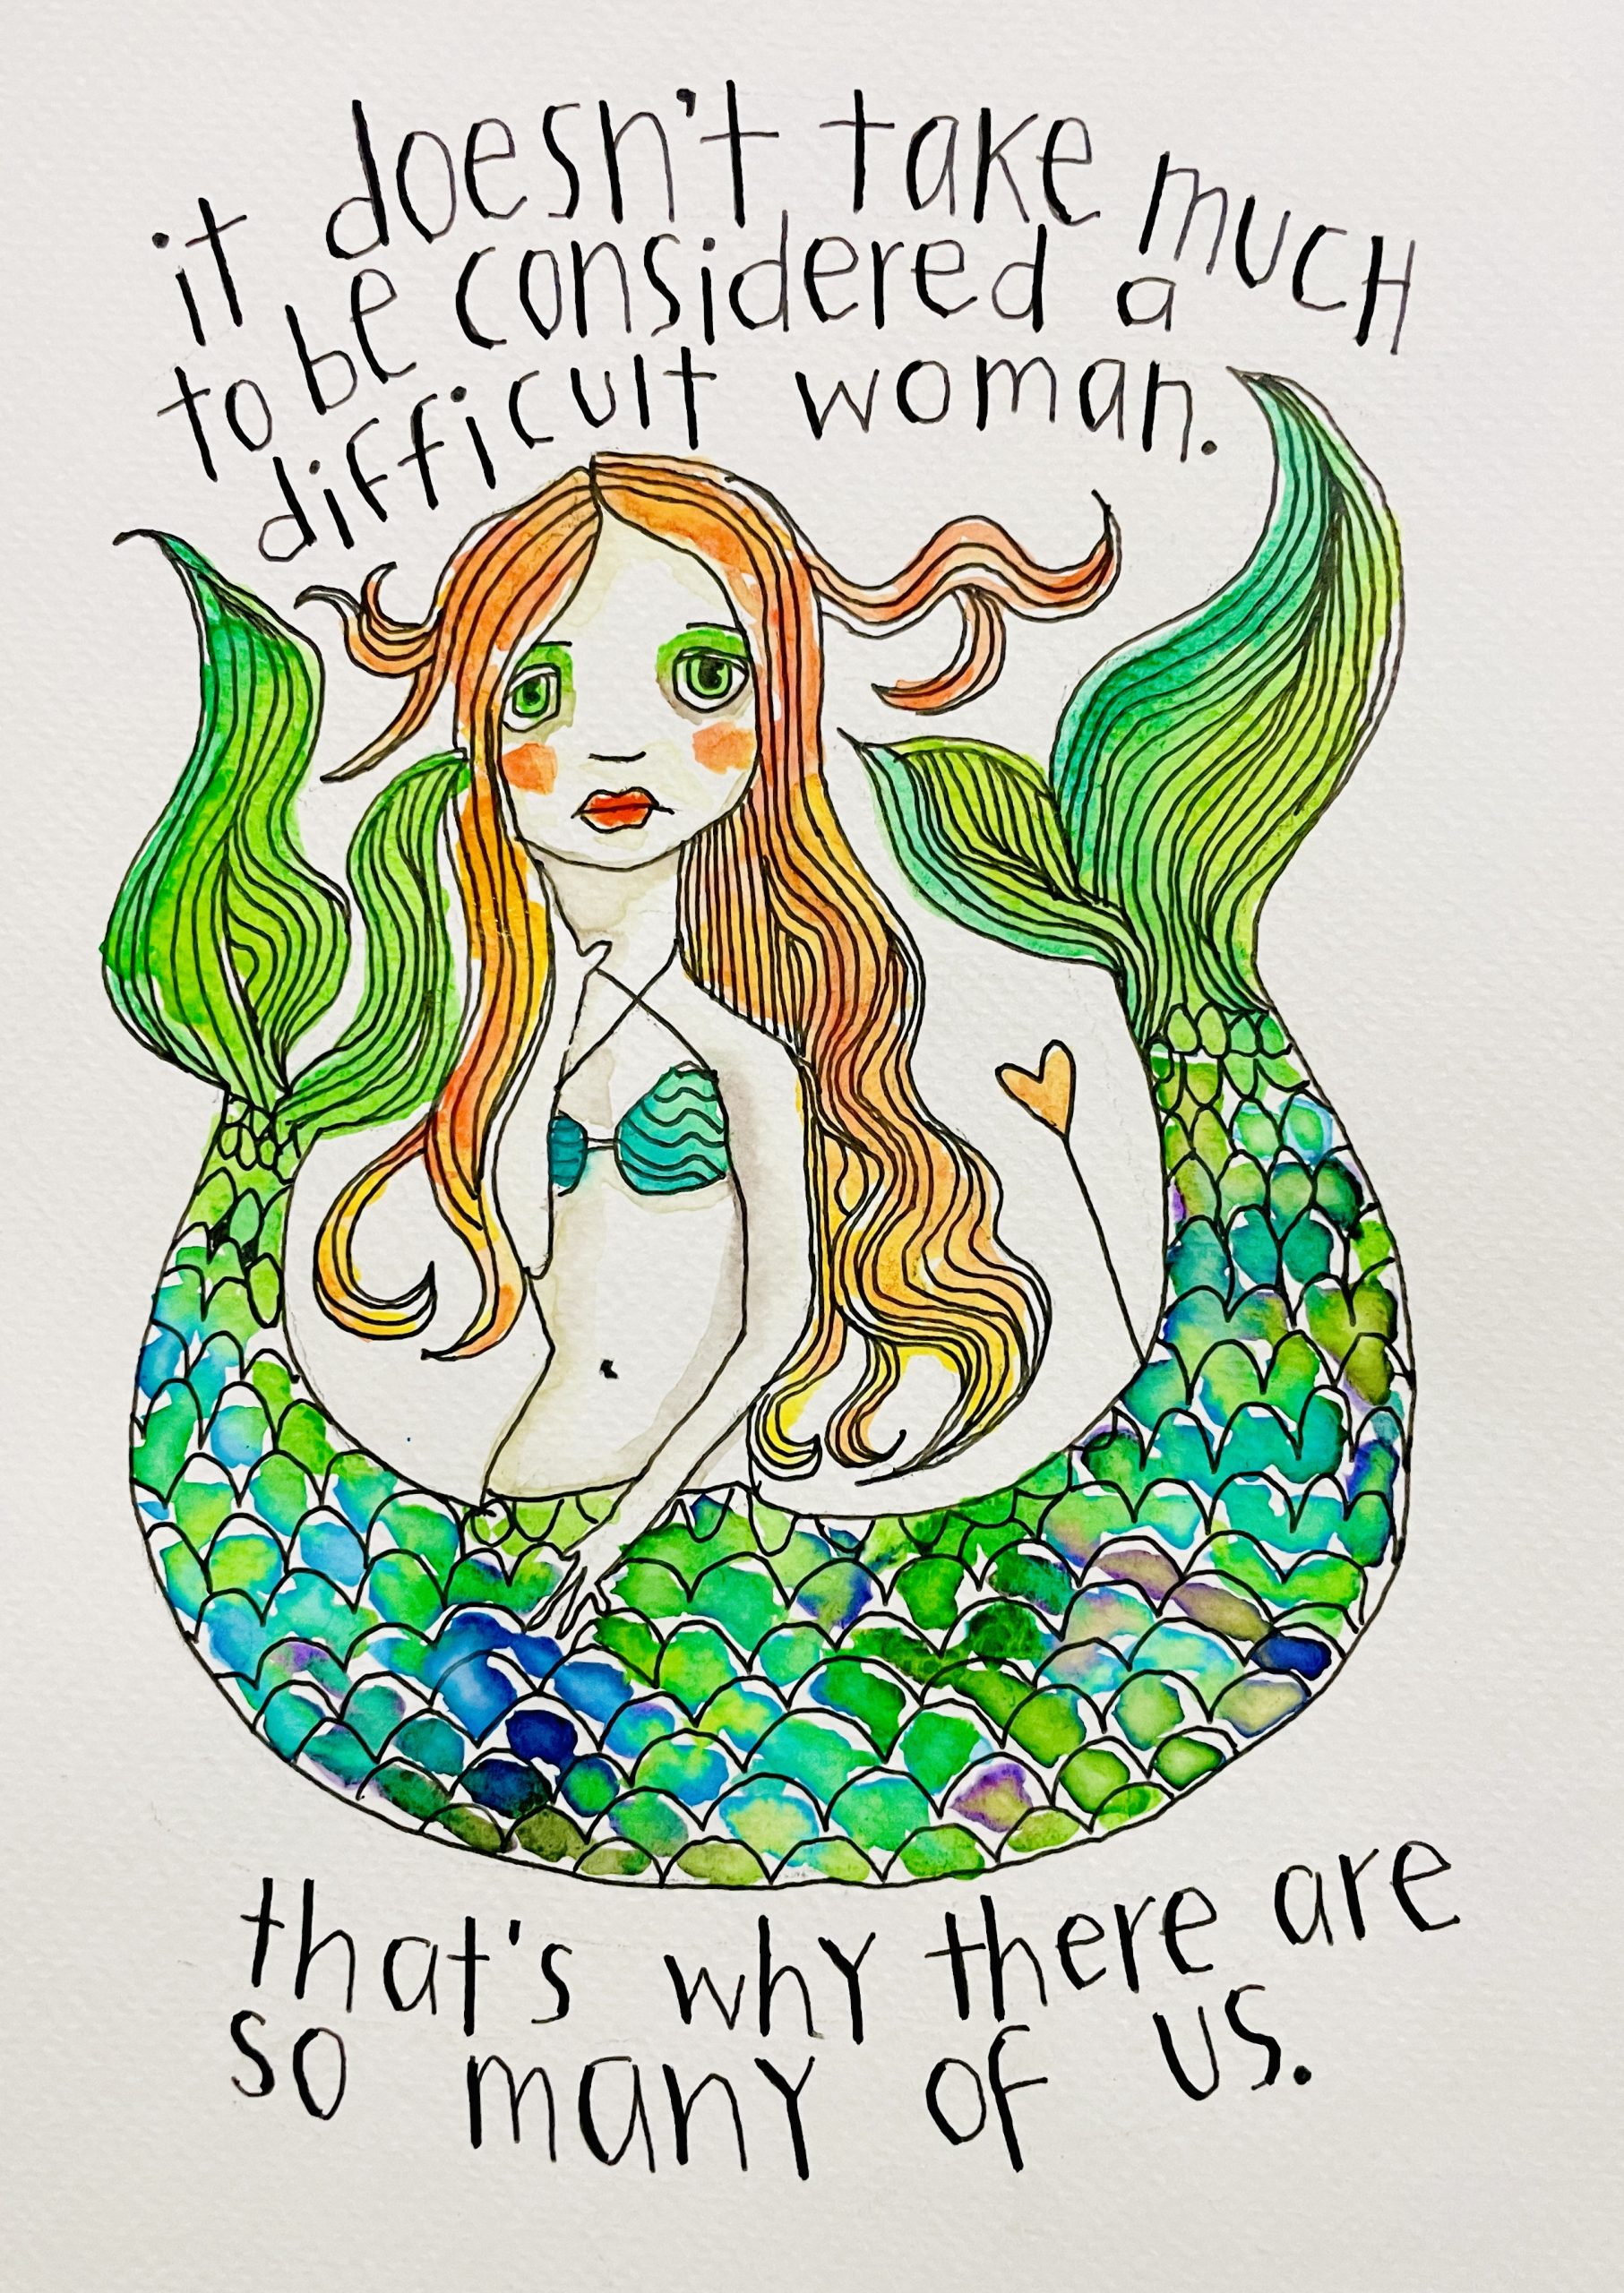 it doesn't take much
to be considered a
difficult woman.
that's why there are
so many of us.